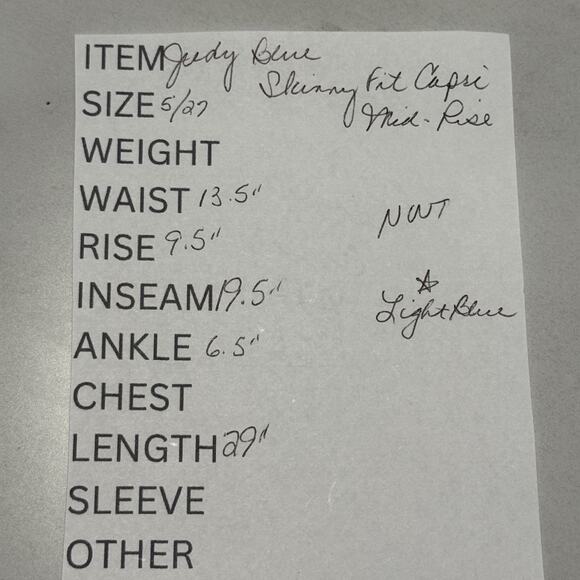 ITEM Judy Blue
Skinny Fit Capri
SIZE 5/27
Mid-Rise
WEIGHT
WAIST 13.5"
NWT
RISE 9.5"
INSEAM 19.5"
☆
Light Blue
ANKLE 6.5"
CHEST
LENGTH 29"
SLEEVE
OTHER